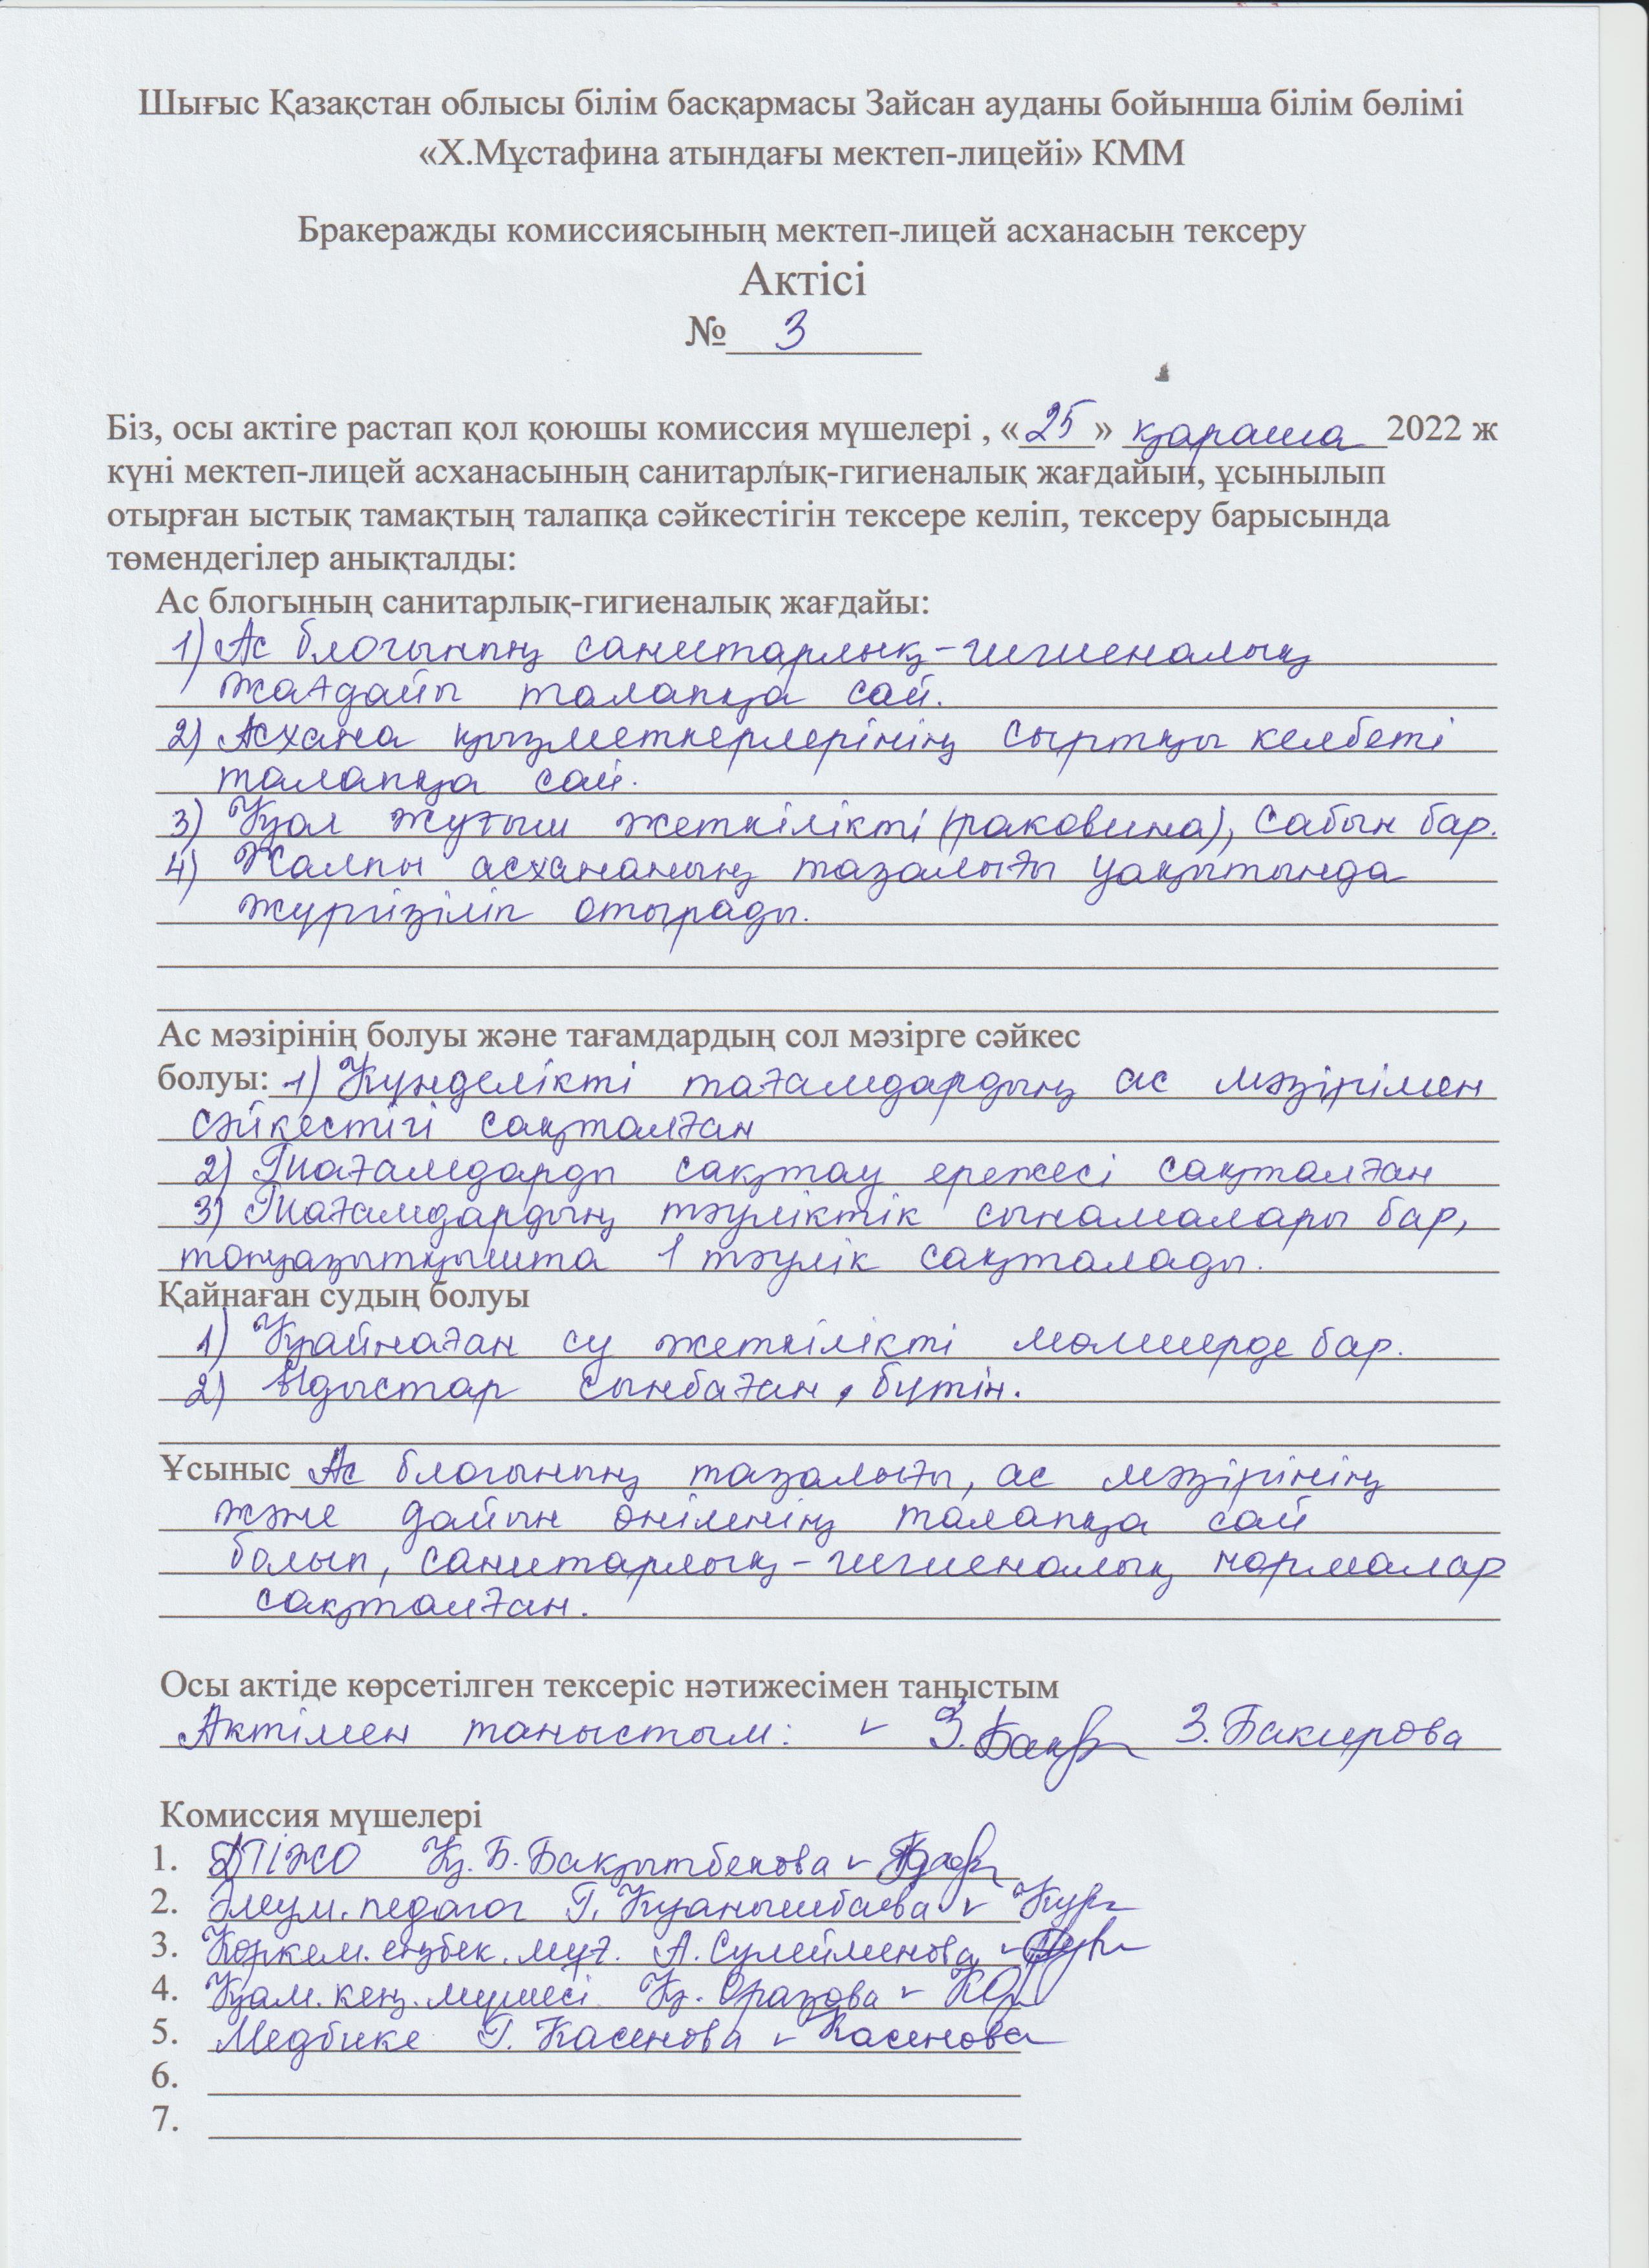 Шығыс Қазақстан облысы білім басқармасы Зайсан ауданы бойынша білім бөлімі
«Х.Мұстафина атындағы мектеп-лицейі» КММ
Бракеражды комиссиясының мектеп-лицей асханасын тексеру
Актісі
№ 3
Біз, осы актіге растап қол қоюшы комиссия мүшелері , «25» қараша 2022 ж
күні мектеп-лицей асханасының санитарлық-гигиеналық жағдайын, ұсынылып
отырған ыстық тамақтың талапқа сәйкестігін тексере келіп, тексеру барысында
төмендегілер анықталды:
Ас блогының санитарлық-гигиеналық жағдайы:
1) Ас блогының санитарлық-гигиеналық
жағдайы талапқа сай.
2) Асхана қызметкерлерінің сыртқы келбеті
талапқа сай.
3) Қол жуғыш жеткілікті (раковина), сабын бар.
4) Жалпы асхананың тазалығы уақытында
жүргізіліп отырады.
Ас мәзірінің болуы және тағамдардың сол мәзірге сәйкес
болуы: 1) Күнделікті тағамдардың ас мәзірімен
сәйкестігі сақталған
2) Тағамдарды сақтау ережесі сақталған
3) Тағамдардың тәуліктік сынамалары бар,
тоңазытқышта 1 тәулік сақталады.
Қайнаған судың болуы
1) Қайнаған су жеткілікті мөлшерде бар.
2) Ыдыстар сынбаған, бүтін.
Ұсыныс Ас блогының тазалығы, ас мәзірінің
және дайын өнімнің талапқа сай
болып, санитарлық-гигиеналық нормалар
сақталған.
Осы актіде көрсетілген тексеріс нәтижесімен таныстым
Актімен таныстым: З. Бакирова
Комиссия мүшелері
1. ДТІЖО Қ. Б. Бақытбекова
2. Әлеум. педагог Г. Куанышбаева
3. Көркем. еңбек. мұғ. А. Сулейменова
4. Қам. кең. мүшесі Қ. Оразова
5. Медбике Г. Касенова Касенова
6.
7.